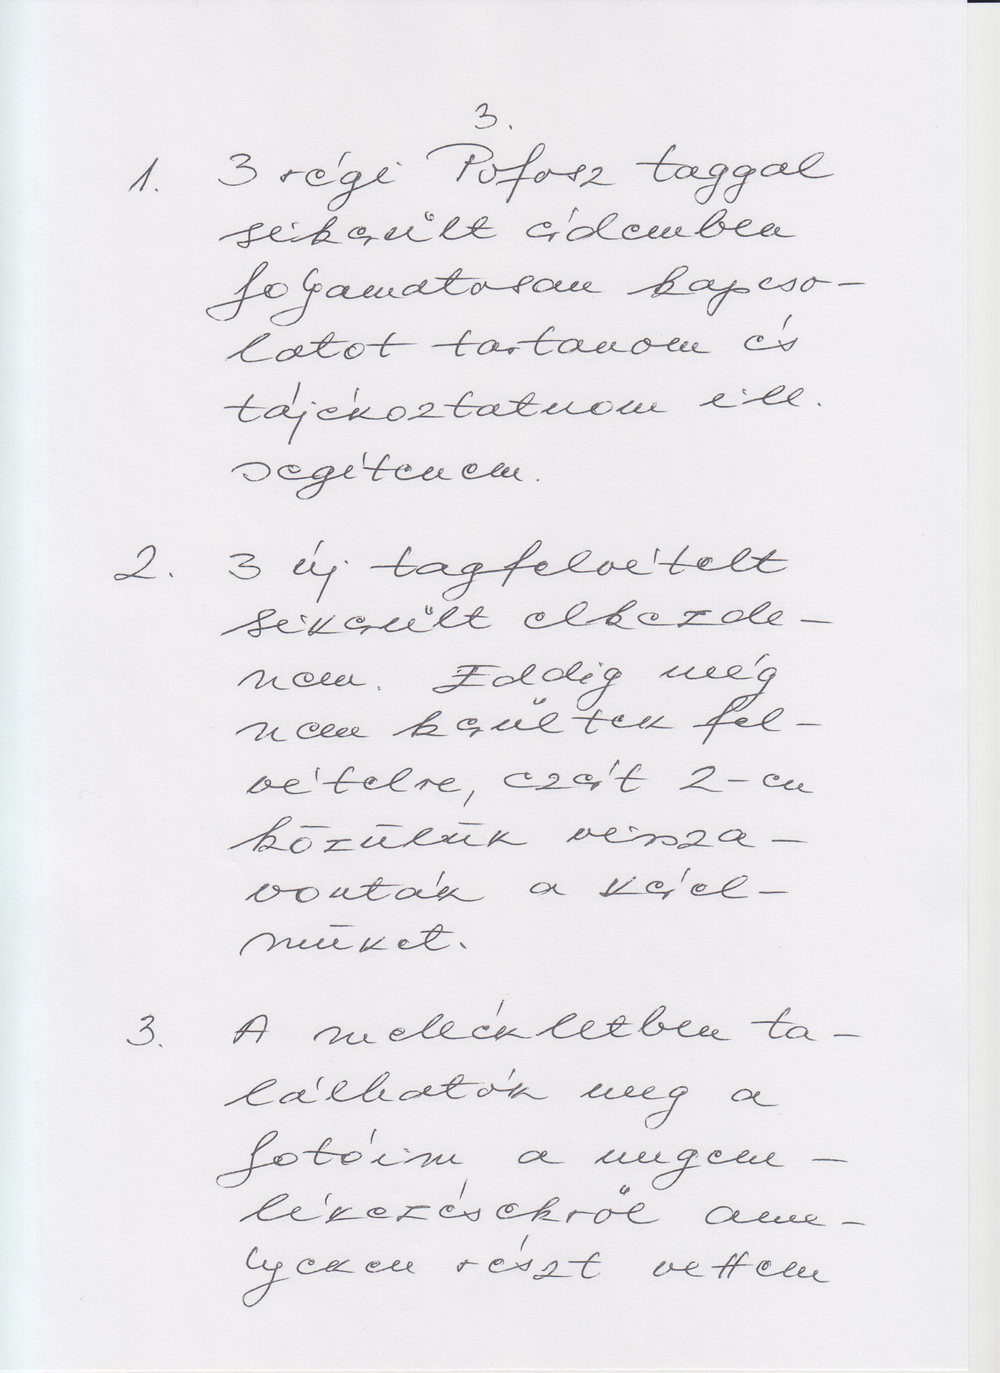 3.
1. 3 régi Pofosz taggal
sikerült érdemben
folyamatosan kapcso-
latot tartanom és
tájékoztatnom ill.
segítenem.
2. 3 új tagfelvételt
sikerült elkezde-
nem. Eddig még
nem kerültek fel-
vételre, ezért 2-en
közülük vissza-
vonták a kérel-
müket.
3. A mellékletben ta-
lálhatók meg a
fotóim a megem-
lékezésekről ame-
lyeken részt vettem